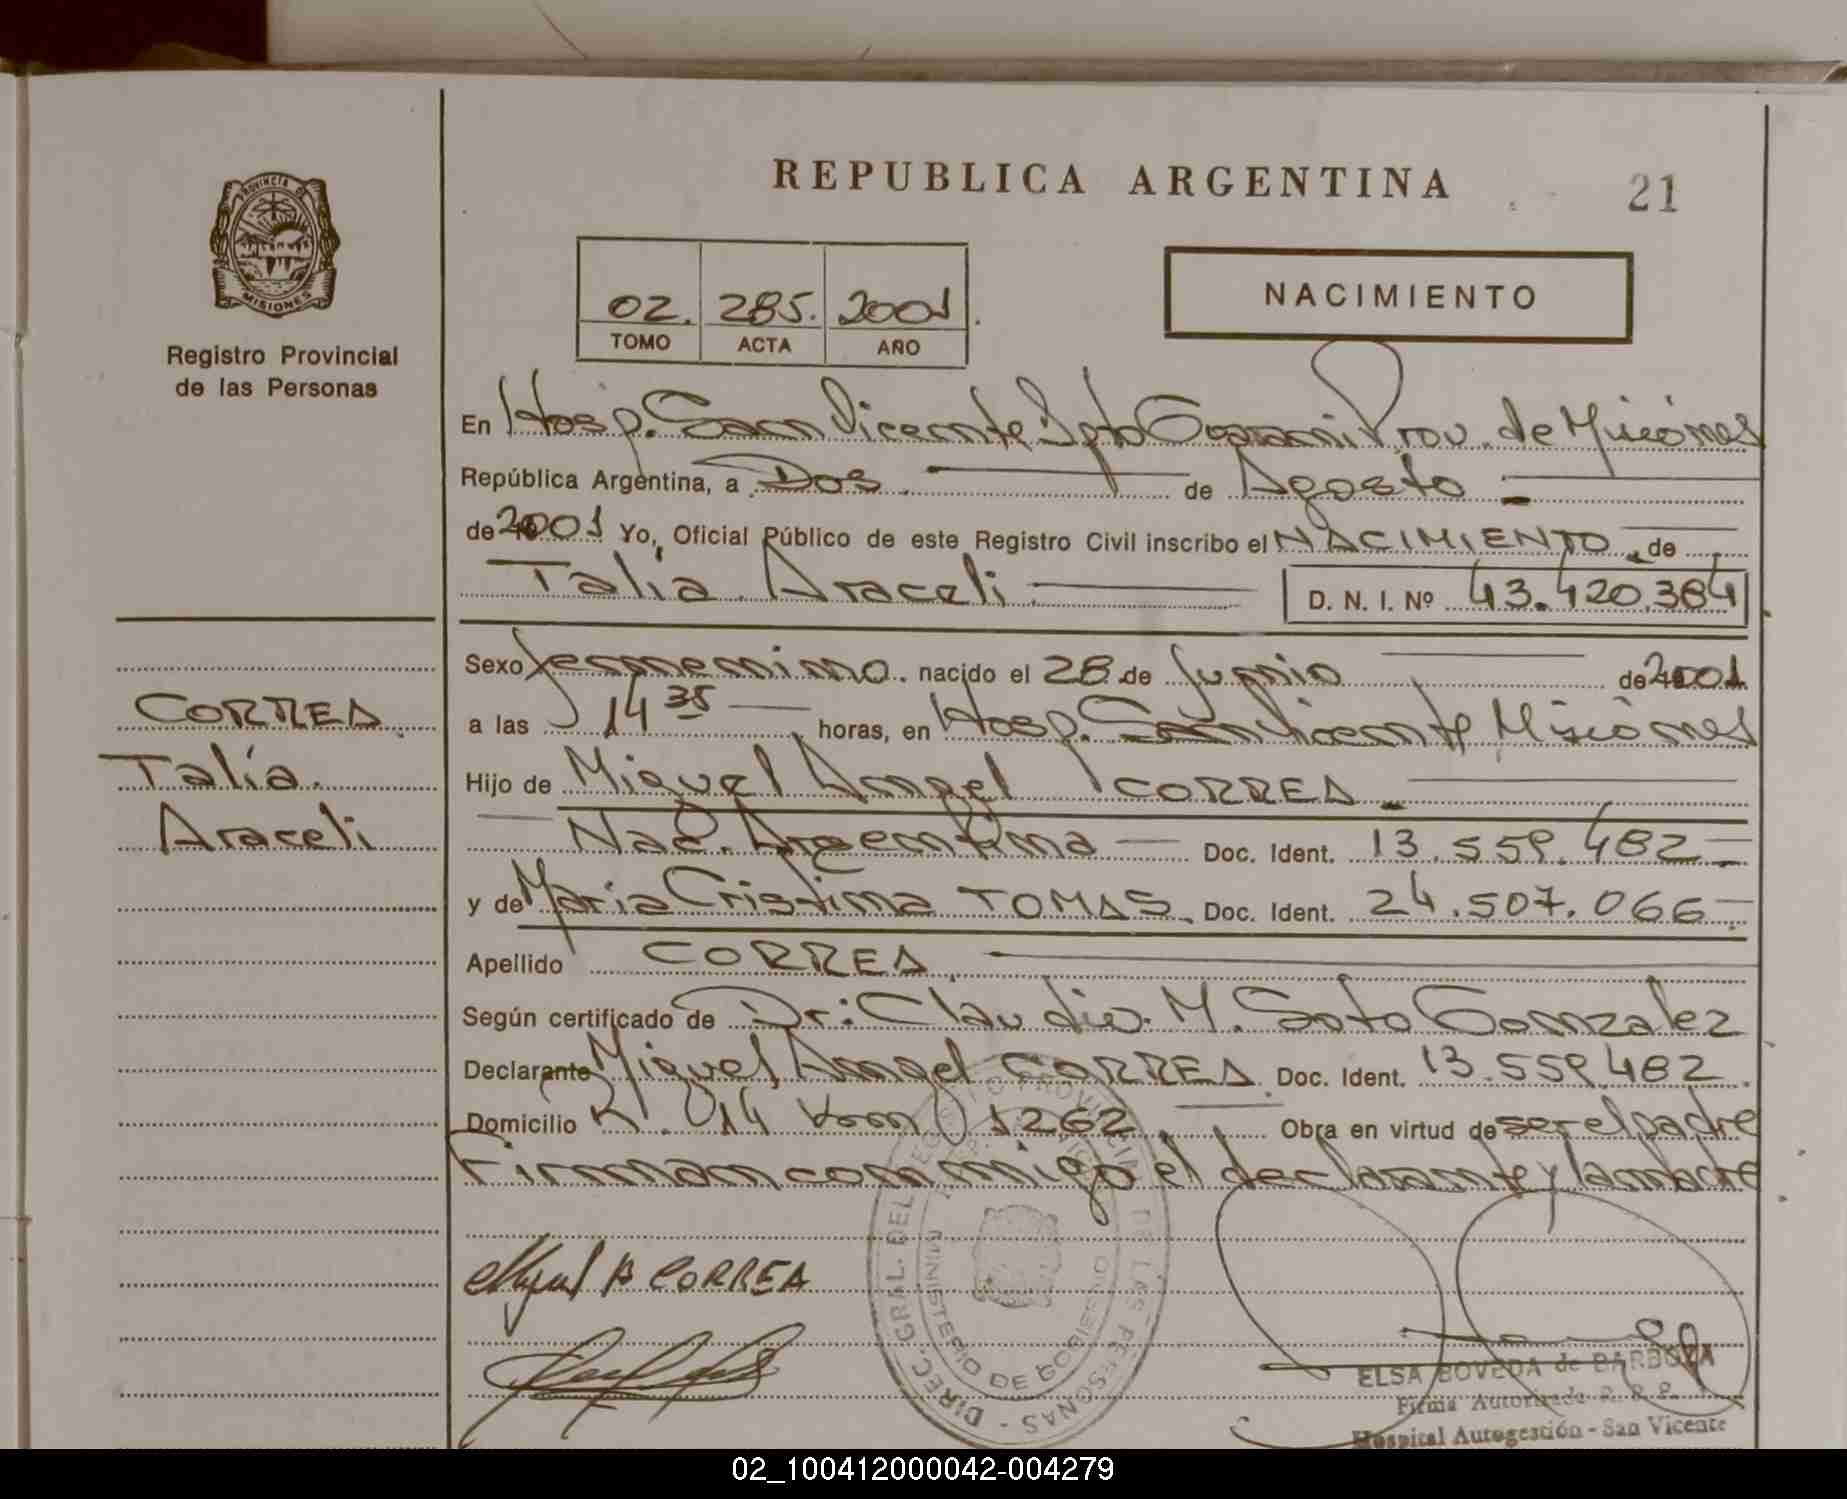 REPUBLICA ARGENTINA
21
PROVINCIA DE
MISIONES
Registro Provincial
de las Personas
02. 285. 2001.
TOMO ACTA AÑO
NACIMIENTO
En Hosp. San Vicente Dpto Guarani Prov. de Misiones
República Argentina, a Dos de Agosto
de 2001 Yo, Oficial Público de este Registro Civil inscribo el NACIMIENTO de
Talía Araceli D. N. I. Nº 43.420.384
Sexo femenino. nacido el 28 de Junio de 2001
a las 14 35 horas, en Hosp. San Vicente Misiones
Hijo de Miguel Angel CORREA
Nac. Argentina Doc. Ident. 13.559.482
y de María Cristina TOMAS. Doc. Ident. 24.507.066
Apellido CORREA
Según certificado de Dr: Claudio. M. Soto Gonzalez
Declarante Miguel Angel CORREA Doc. Ident. 13.559.482
Domicilio R. 014 Km 1262 Obra en virtud de ser el padre
Firman conmigo el declarante y la madre
CORREA
Talía.
Araceli
Miguel A CORREA
DIREC. GRAL. DEL REGISTRO PROVINCIAL DE LAS PERSONAS
MINISTERIO DE GOBIERNO
ELSA BOVEDA de BARBOZA
Firma Autorizada R. P. P.
Hospital Autogestión - San Vicente
02_100412000042-004279